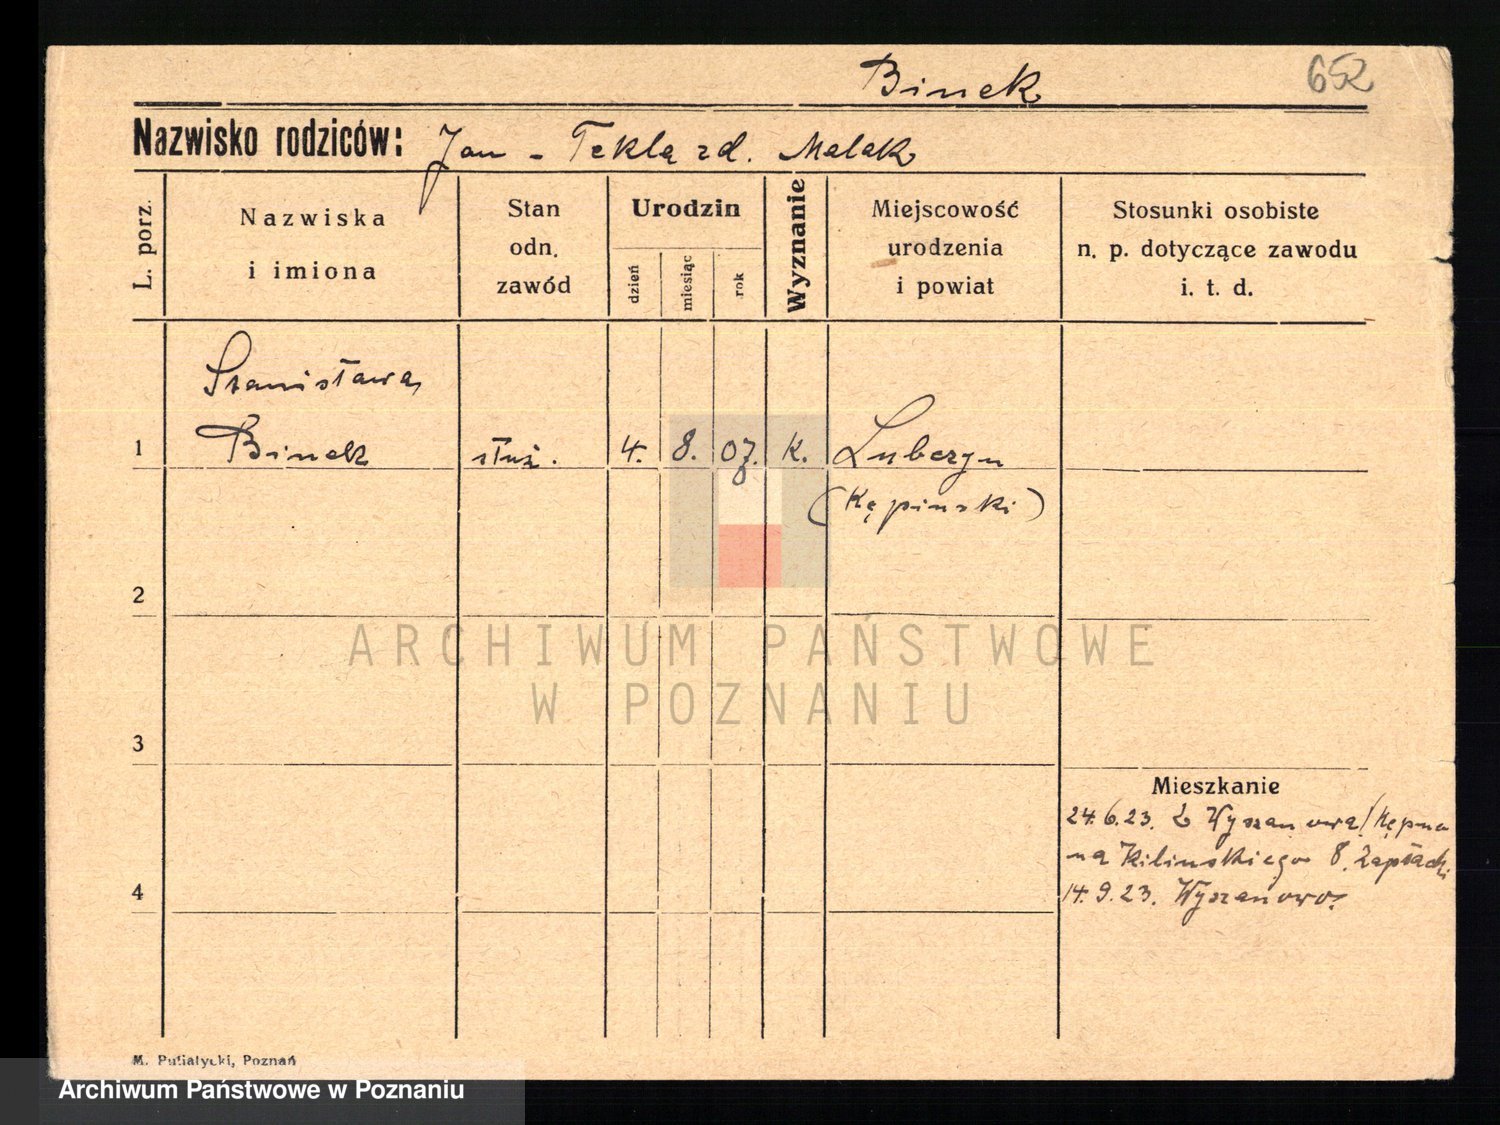 Binek
652
Nazwisko rodziców: Jan - Tekla zd. Malak
L. porz.
Nazwiska
i imiona
Stan
odn.
zawód
Urodzin
dzień
miesiąc
rok
Wyznanie
Miejscowość
urodzenia
i powiat
Stosunki osobiste
n. p. dotyczące zawodu
i. t. d.
Stanisława
1 Binek służ. 4. 8. 07. K. Luberzyn
(Kępiński)
2
ARCHIWUM PAŃSTWOWE
W POZNANIU
3
Mieszkanie
24.6.23. z Wyszanowa/Kępna
na Kilińskiego 8.
4
14.9.23. Wyszanowo
M. Putiatycki, Poznań
Archiwum Państwowe w Poznaniu